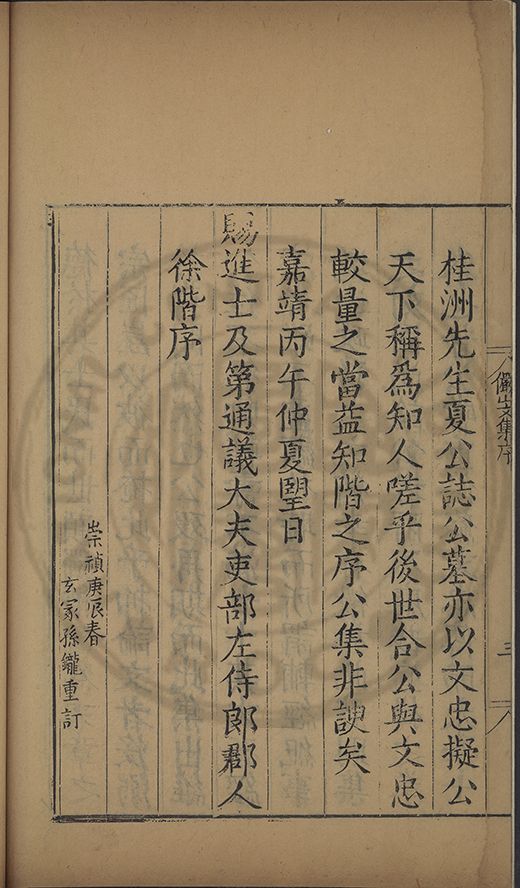 桂洲先生夏公誌公墓亦以文忠擬公
天下稱為知人嗟乎後世合公與文忠
較量之當益知階之序公集非諛矣
嘉靖丙午仲夏朢日
賜進士及第通議大夫吏部左侍郎郡人
徐階序
崇禎庚辰春
玄冢孫鑨重訂
儼山文集序
三